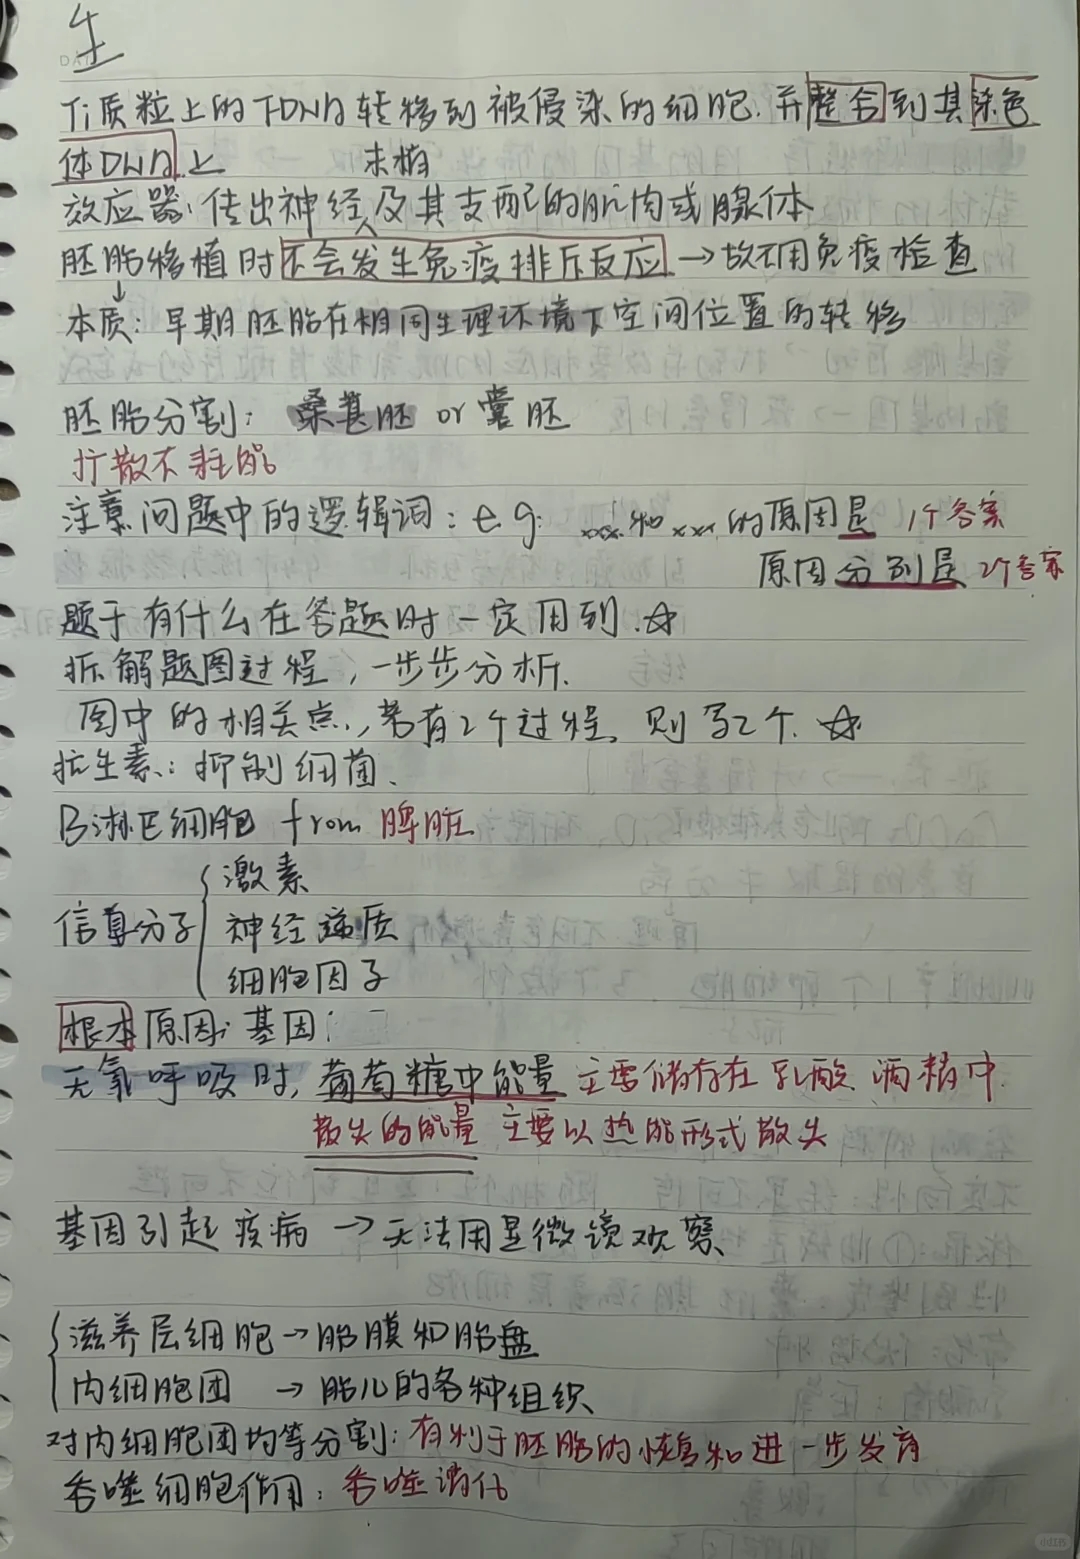 生
Ti质粒上的TDNA转移到被侵染的细胞.并整合到其染色
体DNA上
末梢
效应器:传出神经及其支配的肌肉或腺体
胚胎移植时不会发生免疫排斥反应→故不用免疫检查
↓
本质:早期胚胎在相同生理环境下空间位置的转移
胚胎分割: 桑葚胚 or 囊胚
扩散不耗能
注意问题中的逻辑词:e.g: xxx和xxx的原因是 1个答案
原因分别是 2个答案
题干有什么在答题时一定用到.☆
拆解题图过程,一步步分析.
图中的相关点,若有2个过程,则写2个.☆
抗生素:抑制细菌.
B淋巴细胞 from 脾脏
激素
信息分子 神经递质
细胞因子
根本原因:基因:
无氧呼吸时,葡萄糖中能量主要储存在乳酸.酒精中.
散失的能量主要以热能形式散失
基因引起疾病→无法用显微镜观察.
滋养层细胞→胎膜和胎盘
内细胞团→胎儿的各种组织.
对内细胞团均等分割:有利于胚胎的恢复和进一步发育
吞噬细胞作用:吞噬消化